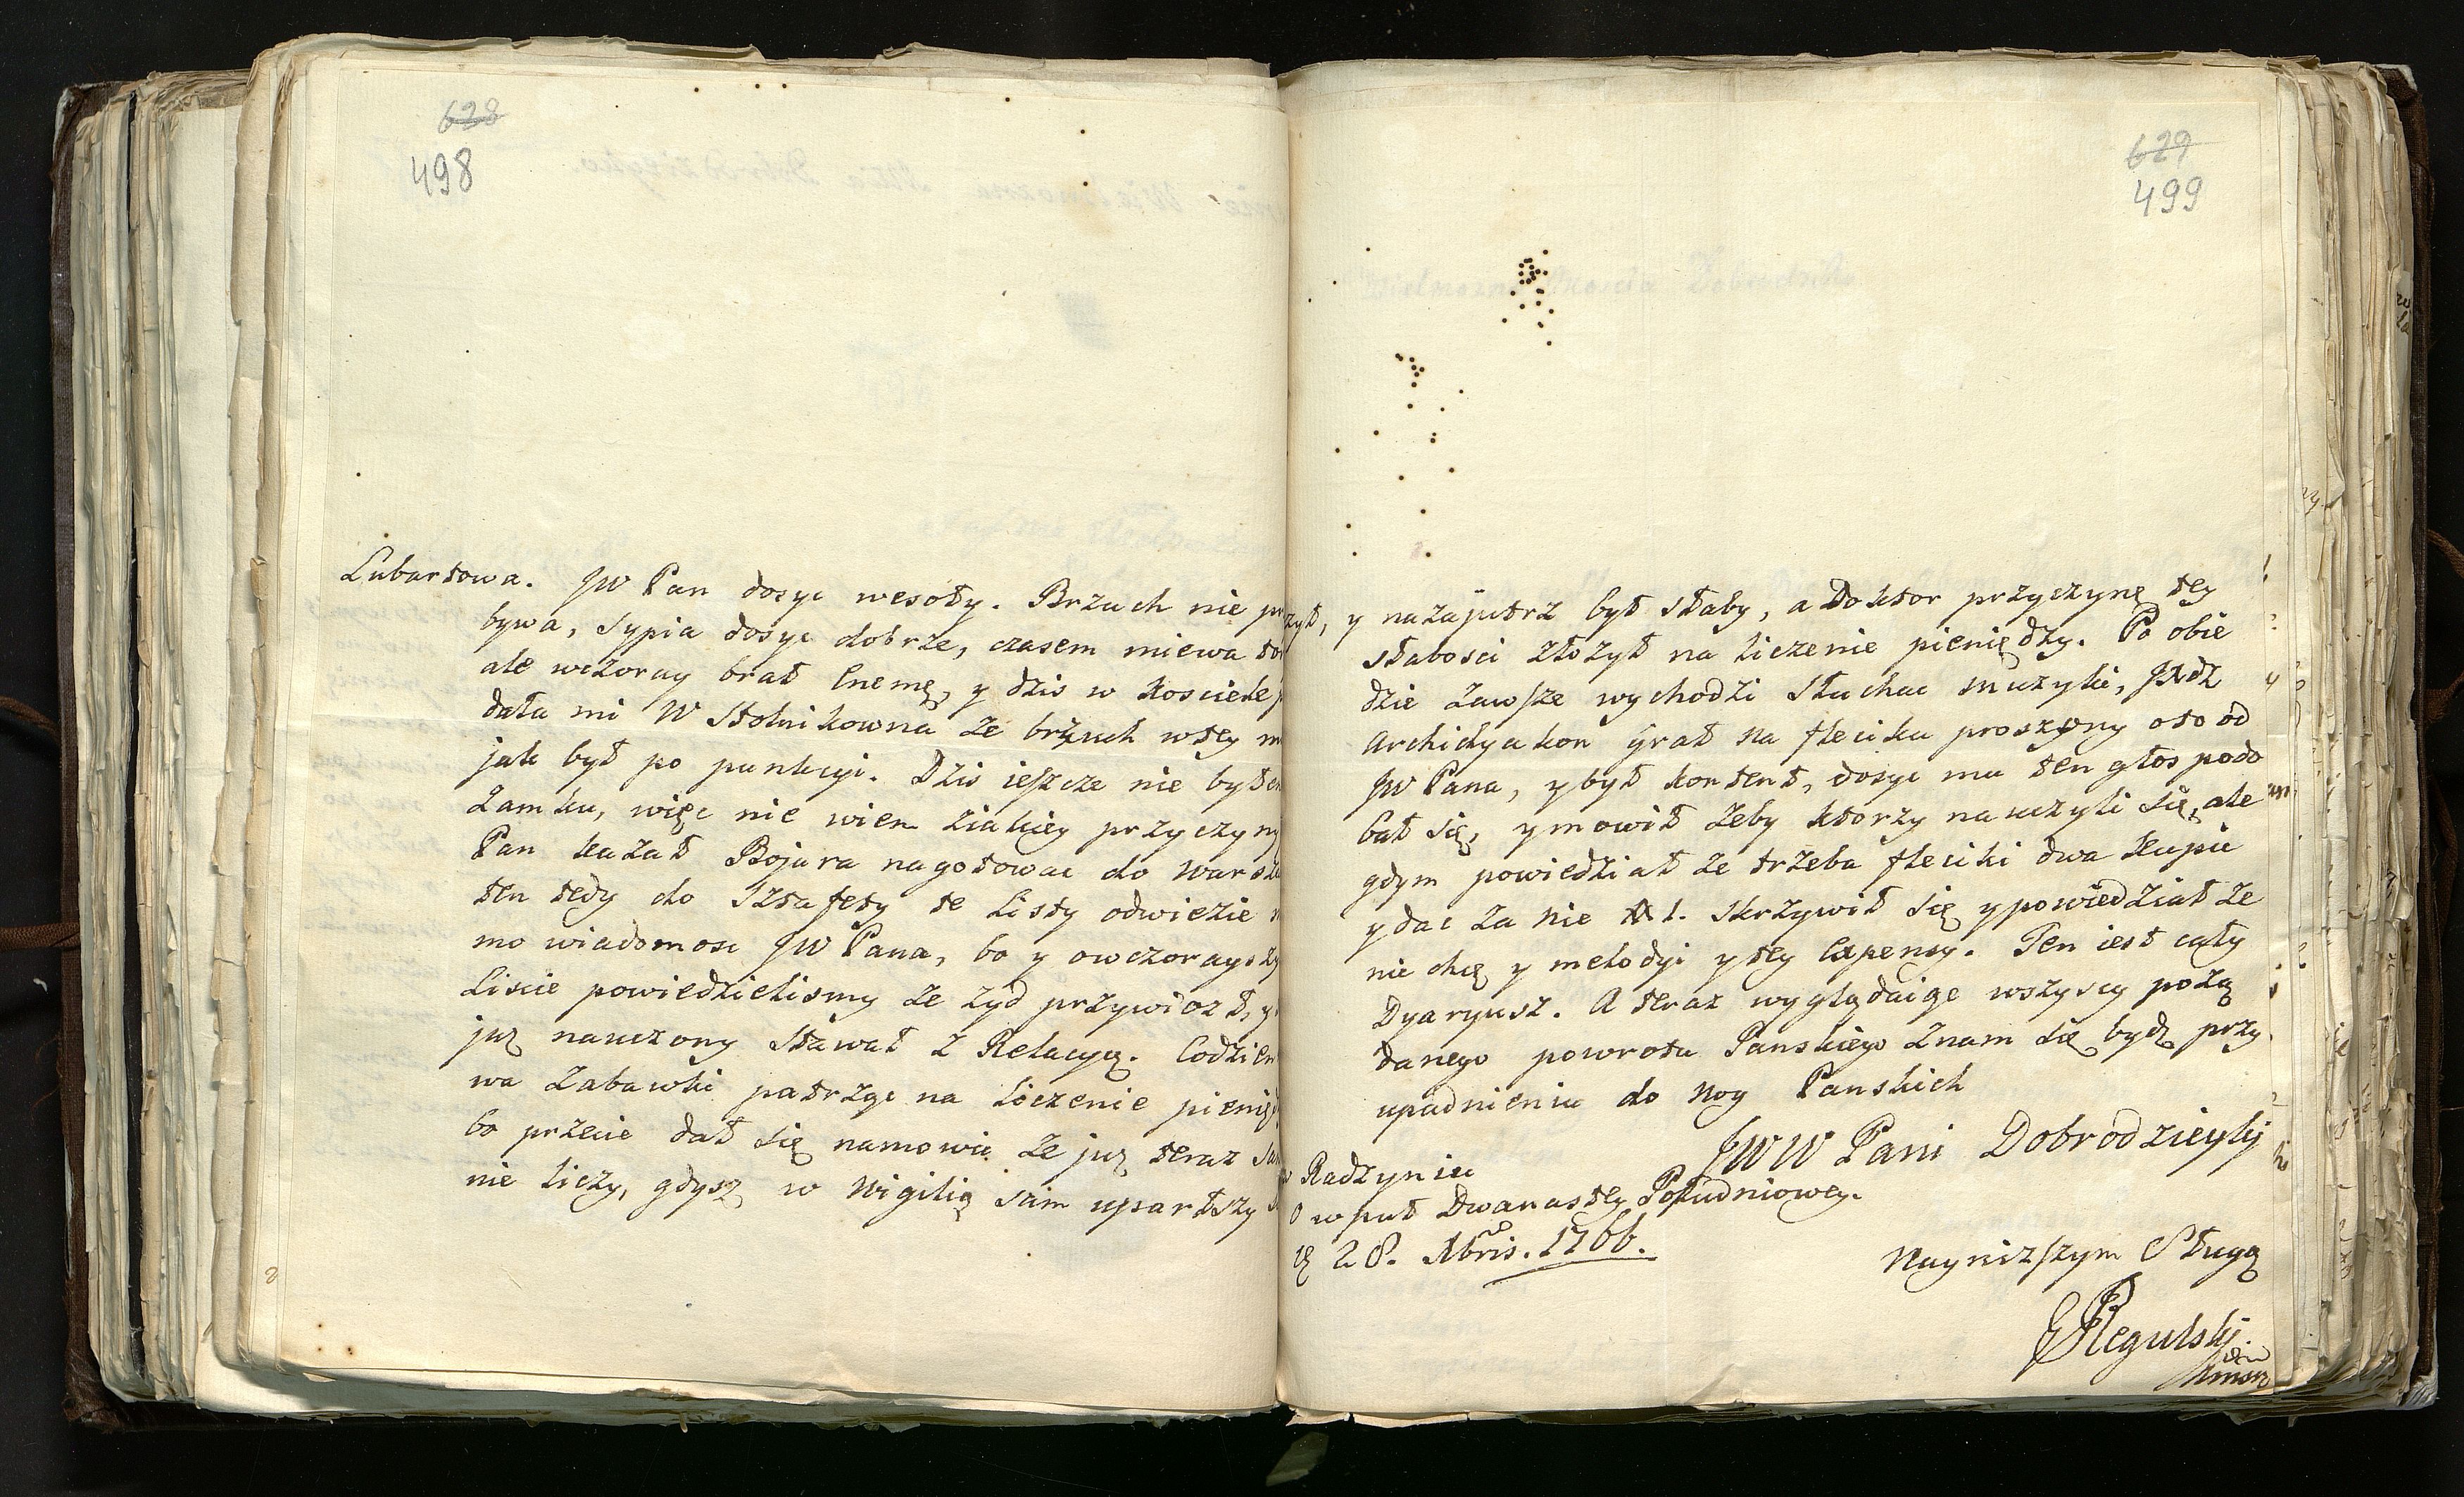 628
498
Lubartowa. JW Pan dosyc wesoły. Brzuch nie pr
bywa, sypia dosyc dobrze, czasem miewa
ale wczoray brał Enemę, y dzis w kosciele
dała mi W Stolnikowna że brzuch wtey m
jak był po punkcyi. Dzis ieszcze nie byłem
Zamku, więc nie wiem ziakiey przyczyny
Pan kazał Bojara nagotowac do Warsz
ten tedy do Sztafety te Listy odwiezie
mo wiadomosc JW Pana, bo y owczorayszy
Liscie powiedzielismy że zyd przywiozł, y
juz nauczony stawał z Relacyą. Codzien
wa Zabawki patrząc na liczenie pienięd
bo przecie dał się namowic że juz teraz sam
nie liczy, gdysz w Wigilią sam uparłszy
629
499
zył, y nazajutrz był słaby, a Doktor przyczynę tey
słabosci złożył na liczenie pieniędzy. Po obie
dzie zawsze wychodzi słuchac muzyki, JXdz
Archidyakon grał na fleciku proszony oto od
JW Pana, y był kontent, dosyc mu ten głos podo
bał się, ymowił żeby ktorzy nauczyli się, ale
gdym powiedział że trzeba fleciki dwa kupic
y dac za nie 1. skrzywił się ypowiedział że
nie chcę y melodyi ytey Expensy. Ten iest cały
Dyaryusz. A teraz wyglądaiąc wszyscy pożą
danego powrotu Panskiego Znam się bydz przy
upadnieniu do Nog Panskich
JWW Pani Dobrodzieyki
Radzyniu
o wpuł Dwanastey Południowey.
28. Xbris. 1766.
Nayniższym Sługą
Regulski